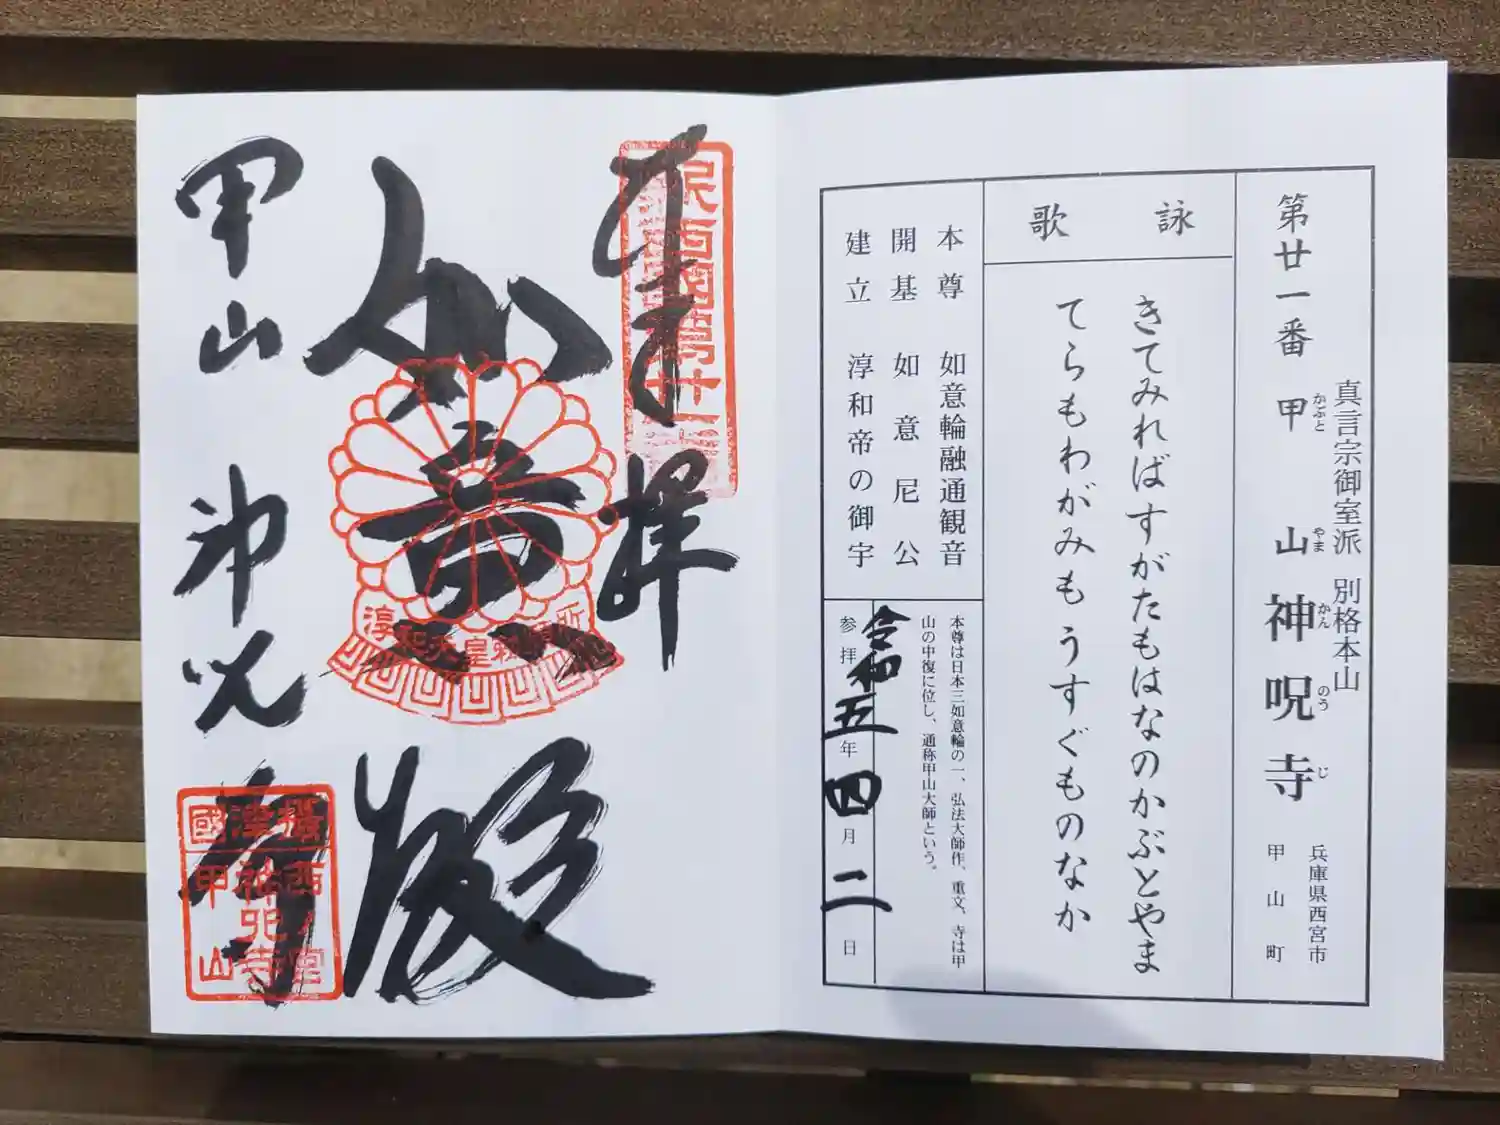 真言宗御室派 別格本山
第廿一番 甲山神呪寺
かぶと やま かん のう じ
兵庫県西宮市
甲山町
詠歌
きてみればすがたもはなのかぶとやま
てらもわがみもうすぐものなか
本尊 如意輪融通観音
開基 如意尼公
建立 淳和帝の御宇
本尊は日本三如意輪の一、弘法大師作、重文、寺は甲
山の中復に位し、通称甲山大師という。
参拝 令和五年四月二日
奉拝
如意殿
甲山 神呪寺
摂津國
西ノ宮
神呪寺
甲山